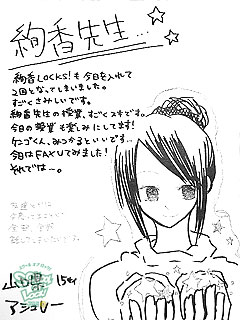 絢香先生…
絢香LOCKS!も今日を入れて
2回となってしまいました。
すごくさみしいです。
絢香先生の授業、すごくスキです。
今日の授業も楽しみにしてます!
ケンゴくん、みつかるといいです…
今日はFAXしてみました!
それでは…。
山口県 15才
アシュレー